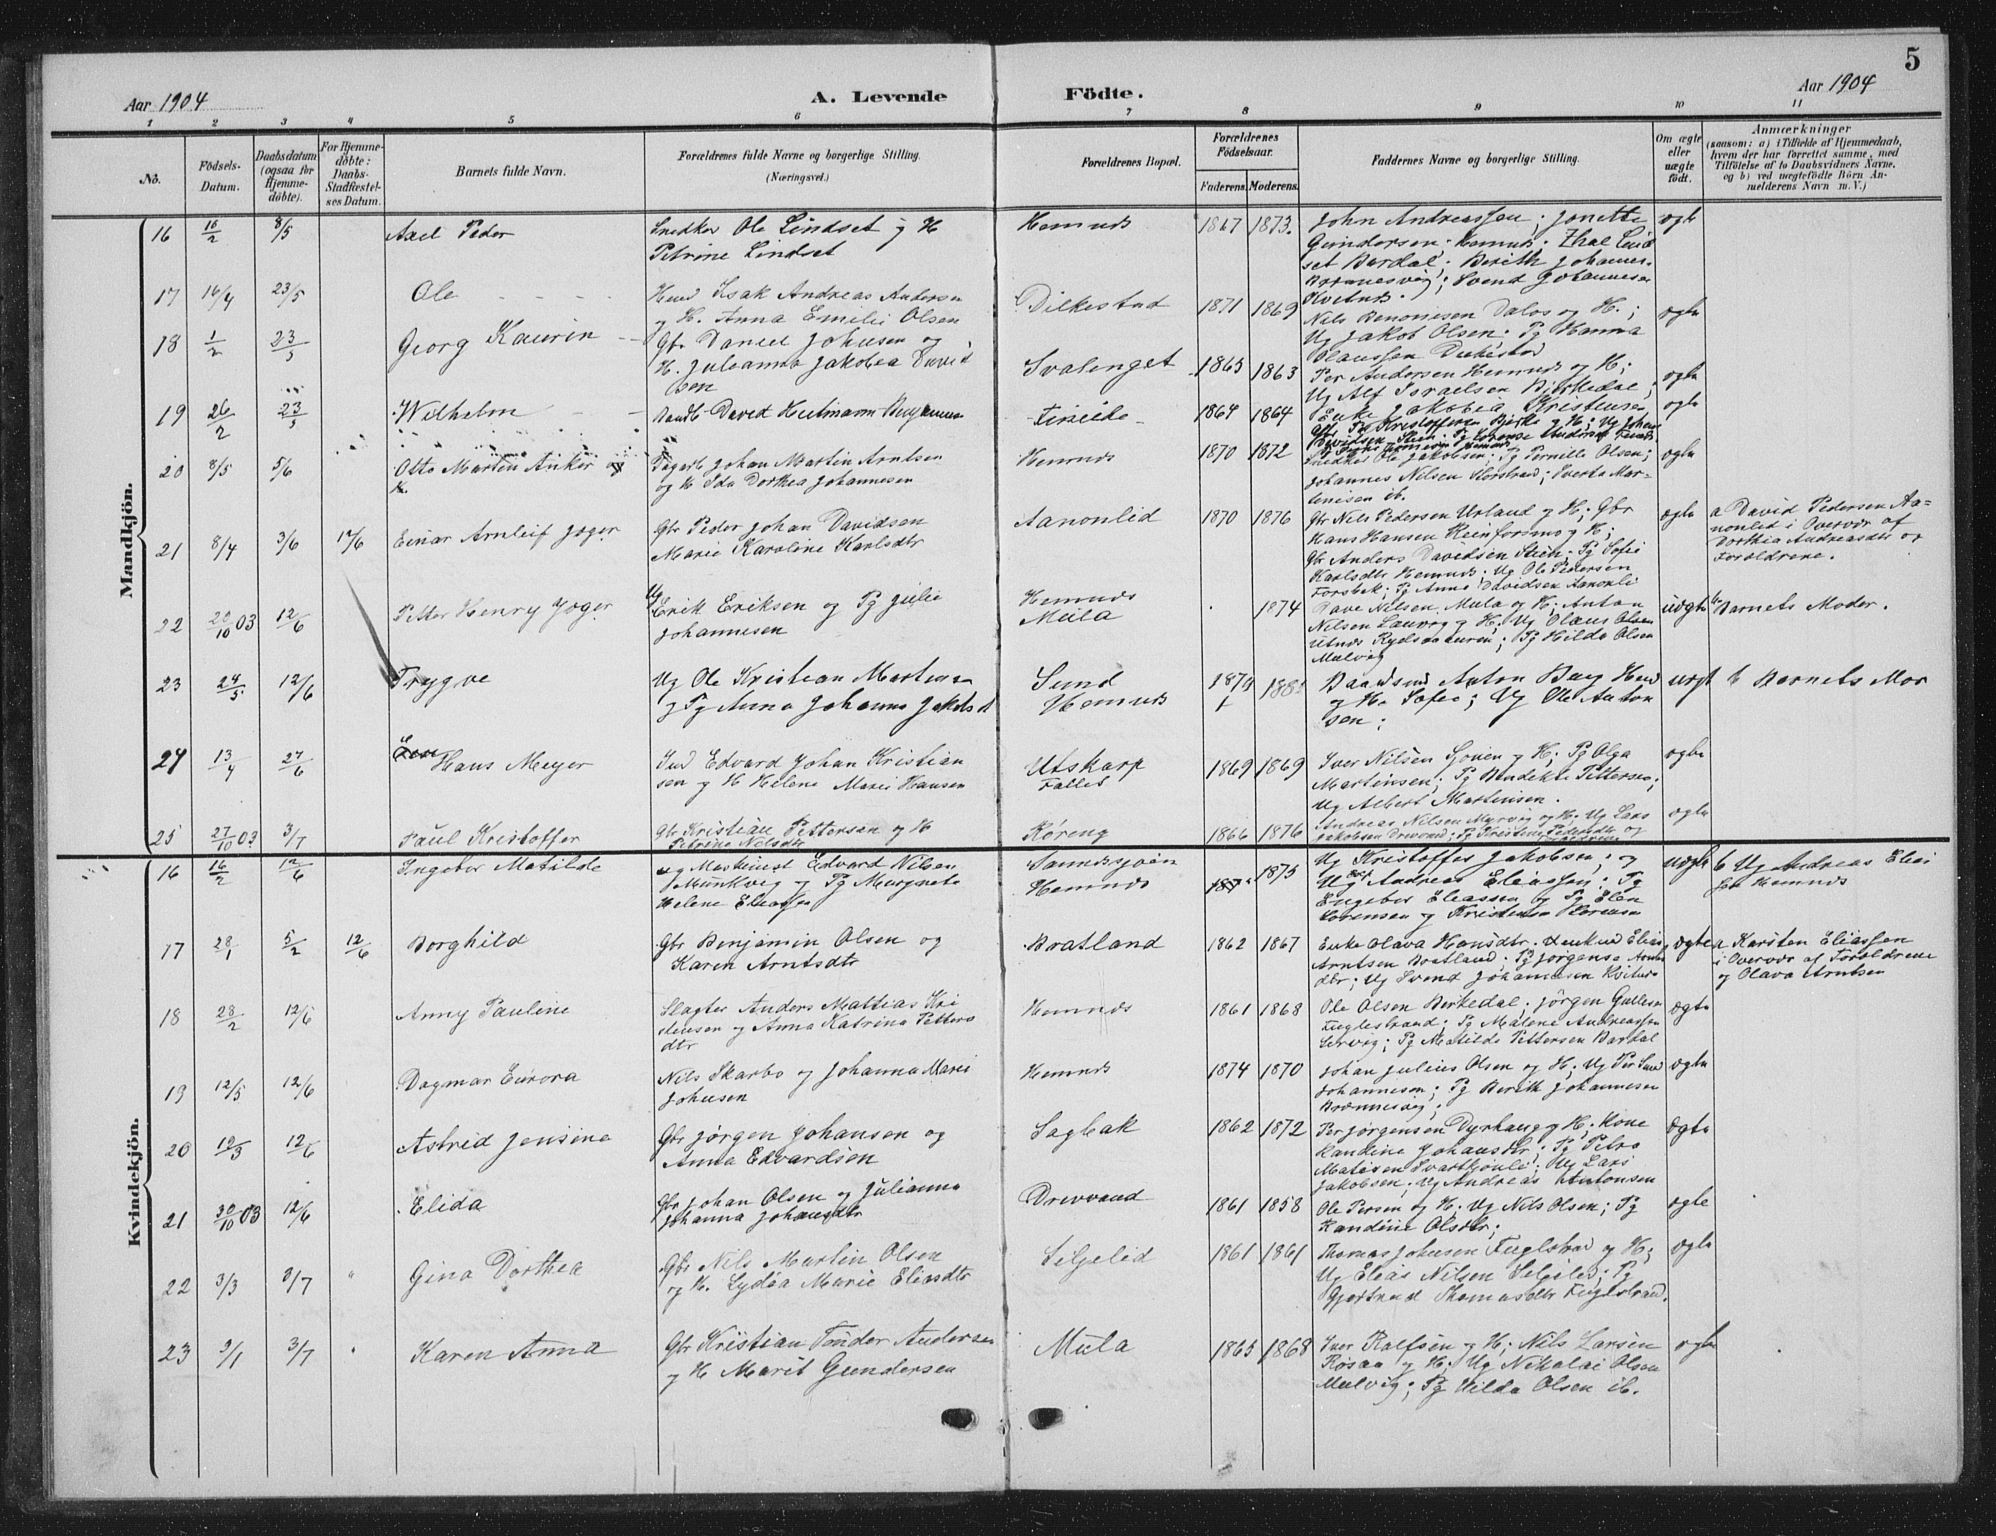 5
Aar 1904
A. Levende
Födte.
Aar 1904
1 2 3 4 5 6 7 8 9 10 11
No.
Födsels-
Datum.
Daabsdatum
(ogsaa for
Hjemme-
döbte).
For Hjemme-
döbte:
Daabs-
Stadfæstel-
ses Datum.
Barnets fulde Navn.
Forældrenes fulde Navne og borgerlige Stilling.
(Næringsvei.)
Forældrenes Bopæl.
Forældrenes
Födselsaar.
Faderens. Moderens.
Faddernes Navne og borgerlige Stilling.
Om ægte
eller
uægte
födt.
Anmærkninger
(saasom: a) i Tilfælde af Hjemmedaab,
hvem der har forrettet samme, med
Tilföielse af to Daabsvidners Navne.
og b) ved uægtefödte Börn An-
melderens Navn m. V.)
Mandkjön.
16 16/2 8/5 Axel Peder
Snedker Ole Lindset og H
Petrine Lindset
Hemnes 1867 1873.
John Andreassen; Jonette
Gundersen; Hemnes;
set Bardal; Berith Johannes.
Brænnesvig; Svend Johannesen
17 16/4 23/5 Ole
Isak Andreas Andersen
og H. Anna Emelie Olsen
Dilkestad 1871 1869
Nils Benonisen Dalos og H.;
Ug Jakob Olsen; Pg Hanna
Olaussen
18 1/2 23/5 Georg Kaurin
Gbr Daniel Johnsen og
H. Julianna Jakobea David
sen
Svalenget 1863 1863
Per Andersen Hemnes og H;
Ug Alf Israelsen Bjerkedal;
Enke Jakobia Kristense
19 26/2 23/5 Wilhelm
David Heitmann
Fineide 1864 1864
20 8/5 5/6 Otto Martin Anker
Johan Martin Arntsen
og H Ida Dorthea Johannesen
Hemnes 1870 1872
Snedker Ole Jakobsen; Pg Pernille Olsen;
Johannes Nilsen Storstrand; Sverta Mar-
tinisen ib.
21 8/4 3/6 12/6 Einar Arnleif Jøger
Gbr Peder Johan Davidsen
Marie Karoline Karlsdtr
Aanonlid 1870 1876
Gbr Nils Pedersen Urland og H; Gbr
Hans Hansen Reinforsmo og H;
Gbr Anders Davidsen Stien; Pg Sofie
Karlsdtr Hemnes; Ug Ole Pedersen
Forsbak; Pg Anna Davidsen Aanonli
a David Pedersen Aa-
nonlid i Overvær af
Dorthea Andreasdtr og
Forældrene.
22 20/10 03 12/6 Petter Henry Jøger
Ug Erik Eriksen og Pg Julie
Johannesen
Hemnes
Mula 1874
Dave Nilsen Mula og H; Anton
Nilsen Lauvog og H; Ug Olaus Olsen
Pg Hilda Olsen
Mulvig
uægte b Barnets Moder.
23 24/5 12/6 Trygve
Ug Ole Kristian Martens
og Pg Anna Johanna Jakobsd
Sund
Hemnes
Baadsmd Anton Berg Hemd
og H. Sofie; Ug Ole Anton
sen;
uægt b Barnets Mor
24 13/4 27/6 Hans Meyer
Ind Edvard Johan Kristian
sen og H Helene Marie Hansen
Utskarp
Falles 1869 1869
Iver Nilsen Sjoven og H; Pg Olga
Martinsen; Pg Bendekte Petterse;
Ug Albert Martinsen.
25 27/10 03 3/7 Paul Kristoffer
Gbr Kristian Pettersen og H
Petrine Nilsdtr
Røreng 1866 1876
Andreas Nilsen Myrvig og H; Ug Lars
Jakobsen Drevvand; Pg Kristine Pedersdtr og
Kvindekjön.
16 16/2 12/6 Ingebor Matilde
Edvard Nilsen
Munkvig og Pg Margrete
Helene Eliassen
Sannesjøen
Hemnes 1875
Ug Kristoffer Jakobsen; og
Ug Andreas Eliassen; Pg
Engebor Eliassen og Pg Elen
Sørensen og Kristense Sørensen
uægte b Ug Andreas Elias
sen Hemnes
17 28/1 5/2 12/6 Borghild
Gbr Benjamin Olsen og
Karen Arntsdtr
Bratland 1862 1867
Enke Olava Hansdtr. Elias
Arntsen Bratland; Pg Jørgense Arnts
dtr; Ug Svend Johannesen
ægte a Karsten Eliassen
i Overvær af Forældrene
og Olava Arntsen
18 28/2 12/6 Anny Pauline
Slagter Anders Mattias Kri
stensen og Anna Katrina Petters
dtr
Hemnes 1861 1868
Ole Olsen Birkedal; Jørgen Gullesen
Fuglestrand; Pg Malene Andreassen
Lervig; Pg Matilde Pettersen Bardal
ægte
19 12/5 12/6 Dagmar Eurora
Nils Skarbo og Johanna Marie
Johnsen
Hemnes 1874 1870
Johan Julius Olsen og H; Ug Per
Johannesen; Pg Berith Johannesen
Brænnesvig;
ægte
20 19/3 12/6 Astrid Jensine
Gbr Jørgen Johansen og
Anna Edvardsen
Sagbak 1862 1872
Per Jørgensen Dyrhaug og H; Kone
Handine Johansdtr; Pg Petra
Matisen Svartkjønli; Ug Lars
Jakobsen; Ug Andreas Antonsen
ægte
21 30/10 03 12/6 Elida
Gbr Johan Olsen og Julianna
Johanna Johansdtr
Drevvand 1861 1858
Ole Persen og H; Ug Nils Olsen; Pg
Handine Olsdtr;
ægte
22 3/3 3/7 Gina Dorthea
Gbr Nils Martin Olsen
og H. Lydia Marie Eliasdtr
Siljelid 1861 1861
Thomas Johnsen Fuglstrad og H;
Ug Elias Nilsen Seljelid; Pg
Gjertrud Thomasdtr Fuglstrand.
ægte
23 9/1 3/7 Karen Anna
Gbr Kristian Tønder Andersen
og H Marit Gundersen
Mula 1865 1868
Iver Rolfsen og H; Nils Larsen
Røsaa og H; Ug Nikolai Olsen
Mulvig; Pg Hilda Olsen ib.
ægte